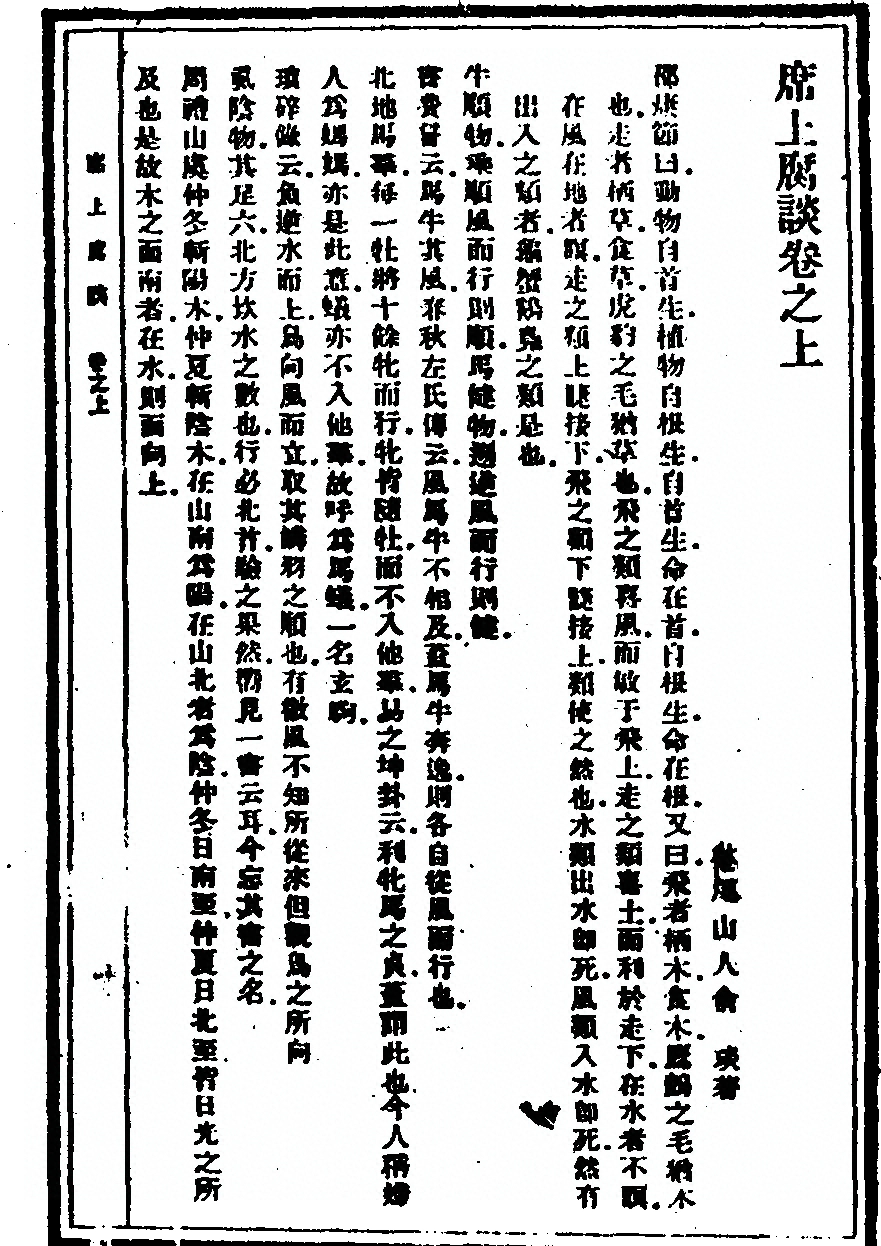 席上腐談卷之上
林屋山人俞　琰著
邵康節曰。動物自首生。植物自根生。自首生。命在首。自根生。命在根。又曰。飛者栖木。食木。鷹鷂之毛猶木
也。走者栖草。食草。虎豹之毛猶草也。飛之類喜風。而敏于飛上。走之類喜土。而利於走下。在水者不瞑。
在風在地者瞑。走之類上睫接下。飛之類下睫接上。類使之然也。水類出水即死。風類入水即死。然有
出入之類者。龜蟹鵝鳧之類是也。
牛順物。乘順風而行則順。馬健物。逆風而行則健。
書費誓云。馬牛其風。春秋左氏傳云。風馬牛不相及。蓋馬牛奔逸。則各自從風而行也。
北地馬羣。每一牡將十餘牝而行。牝皆隨牡。而不入他羣。易之坤卦云。利牝馬之貞。蓋謂此也。今人稱婦
人為媽媽。亦是此意。蟻亦不入他羣。故呼為馬蟻。一名玄駒。
瑣碎錄云。魚逆水而上。鳥向風而立。取其鱗羽之順也。有微風不知所從來。但觀鳥之所向
虱陰物。其足六。北方坎水之數也。行必北首。驗之果然。嘗見一書云耳。今忘其書之名。
周禮山虞。仲冬斬陽木。仲夏斬陰木。在山南為陽。在山北者為陰。仲冬日南至。仲夏日北至。皆日光之所
及也。是故木之面南者。在水則面向上。
席上腐談　卷之上
一